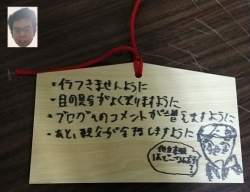 ・イライラしませんように
・目の具合がよくなりますように
・ブログへのコメントが増えますように
・あと、親父が全快しますように